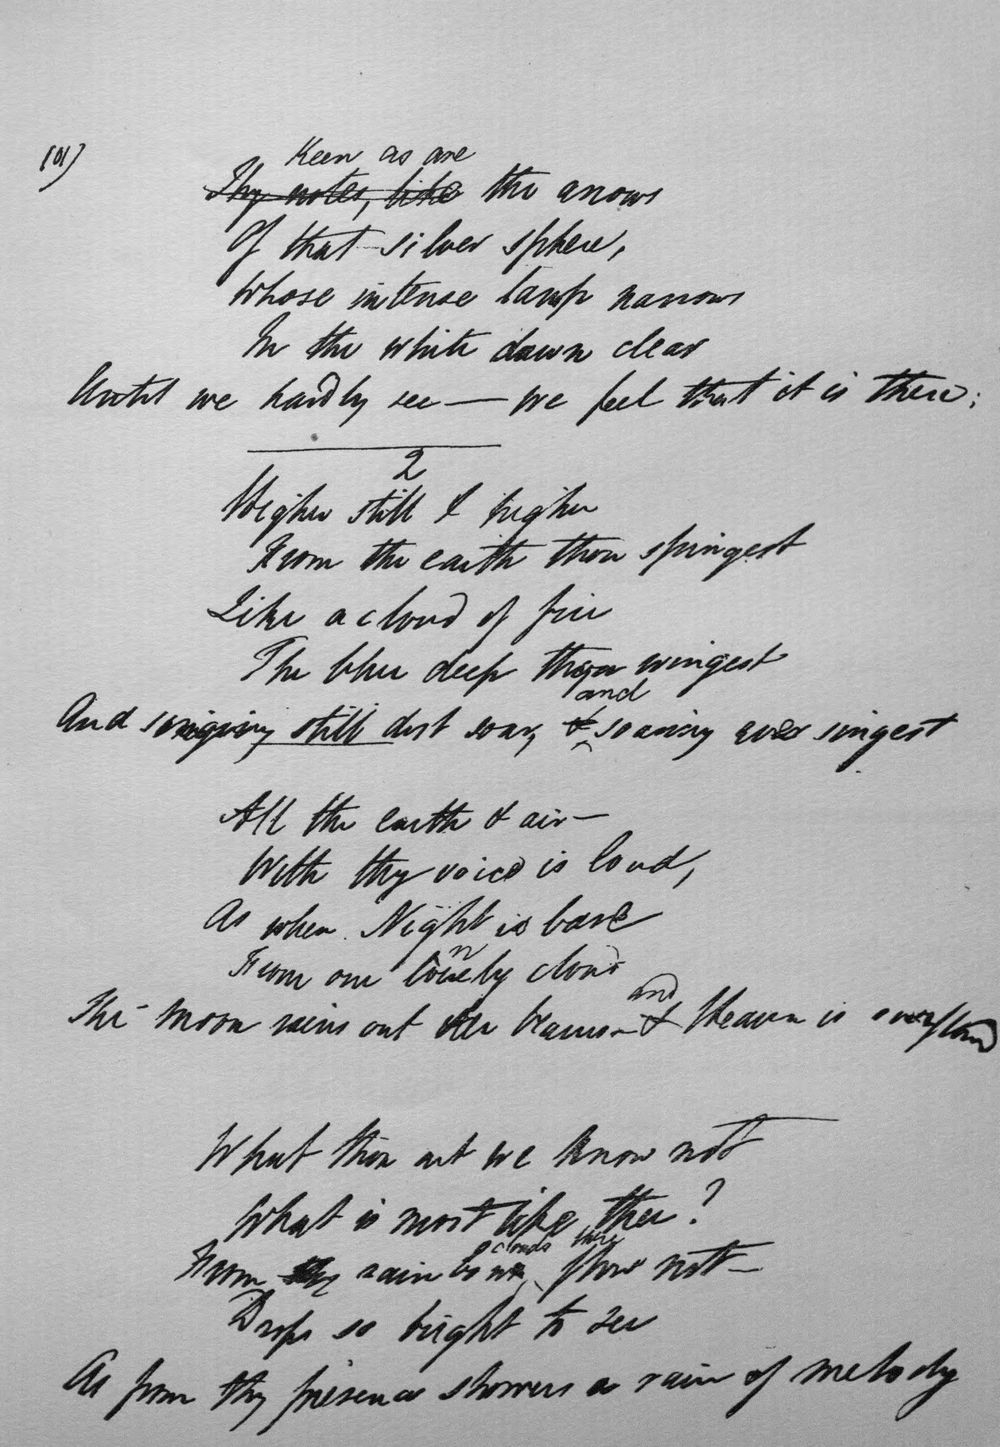 Keen as are
Thy notes, like the arrows
Of that silver sphere,
Whose intense lamp narrows
In the white dawn clear
Until we hardly see — we feel that it is there;
2
Higher still & higher
From the earth thou springest
Like a cloud of fire
The blue deep thou wingest
and
And singing still dost soar, & soaring ever singest
All the earth & air —
With thy voice is loud,
As when Night is bare
From one lonely cloud
and
The moon rains out her beams — & Heaven is overflowd
What thou art we know not
What is most like thee?
clouds there
From rainbow flow not —
Drops so bright to see
As from thy presence showers a rain of melody